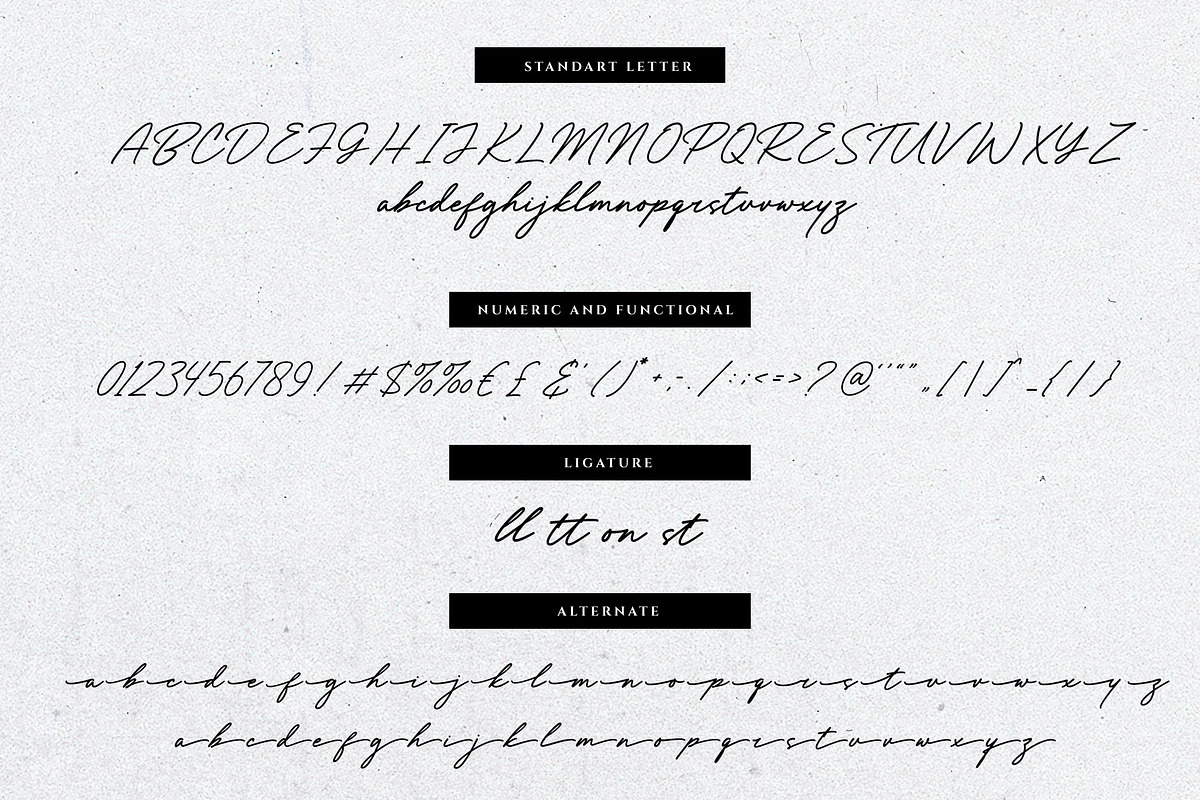 STANDART LETTER
ABCDEFGHIJKLMNOPQRESTUVWXYZ
abcdefghijklmnopqrstuvwxyz
NUMERIC AND FUNCTIONAL
0123456789!#$%‰€£&'()*+,-./:;<=>?@‘’“”„[|]^_{|}
LIGATURE
ll tt on st
ALTERNATE
abcdefghijklmnopqrstuvwxyz
abcdefghijklmnopqrstuvwxyz